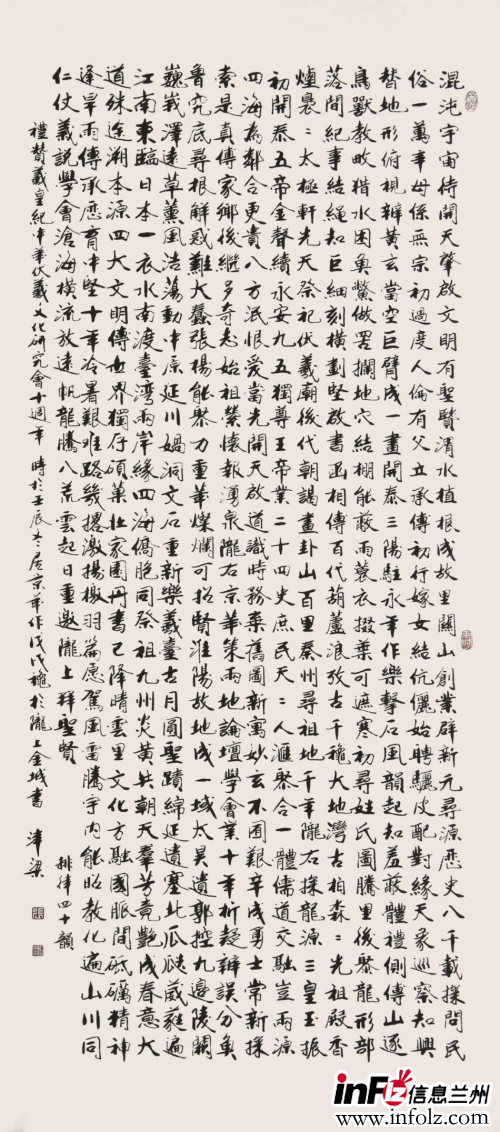 混沌宇宙待開天肇啟文明有聖賢渭水植根成故里關山創業辟新元尋源歷史八千載探問民
俗一萬年母係無宗初過度人倫有父立承傳初行嫁女結伉儷始聘驪皮配對緣天象巡察知興
替地形俯視辨黃玄當空巨臂成一畫開泰三陽駐永年作樂擊石風韻起知羞蔽體禮側傳山逐
鳥獸教畋猎水困魚鱉做罟攔地穴結棚能蔽雨蓑衣掇葉可遮寒初尋姓氏圖騰里後聚龍形部
落間紀事結繩知巨細刻橫劃堅啟書函相傳百代葫蘆浪孜古千穐大地灣古柏森二光祖殿香
煙裊二太極軒先天祭祀伏羲廟後代朝謁畫卦山百里秦州尋祖地千年隴右探龍源三皇玉振
初開泰五帝金聲續永安九五獨尊王帝業二十四史庶民天二人滙聚合一體儒道交融豈兩源
四海為鄰合更貴八方泯恨愛當先開天啟道識時務棄舊圖新寓妙玄不困艱辛成勇士常新探
索是真傳家鄉後繼多奇志始祖縈懷報湧泉隴右京華策兩地論壇學會業十年析疑辨誤分魚
魯究底尋根解惑難大纛張楊能聚力重華燦爛可招賢淮陽故地成一域太昊遺郭控九邊陵闕
巍峩澤遠草薰風浩蕩動中原延川媧洞文石重新樂羲臺古月圓聖蹟綿延遺塞北瓜瓞葳蕤遍
江南東臨日本一衣水南渡臺灣兩岸緣四海僑胞同祭祖九州炎黃共朝天羣芳竟艷成春意大
道殊途溯本源四大文明傳世界獨存碩菓壯家園丹書已降晴雲里文化方融國脈間砥礪精神
逢旱雨傳承歷育中堅十年冷暑艱難路幾撂激揚檄羽篇愿駕風雷騰宇內能昭教化遍山川同
仁仗義說學會滄海橫流放遠帆龍騰八荒雲起日重邀隴上拜聖賢
排律四十韻
禮贊羲皇紀中華伏羲文化研究會十週年 時於壬辰冬居京華作戊戌穐於隴上金城書 津梁
inFlz 信息兰州
www.infolz.com